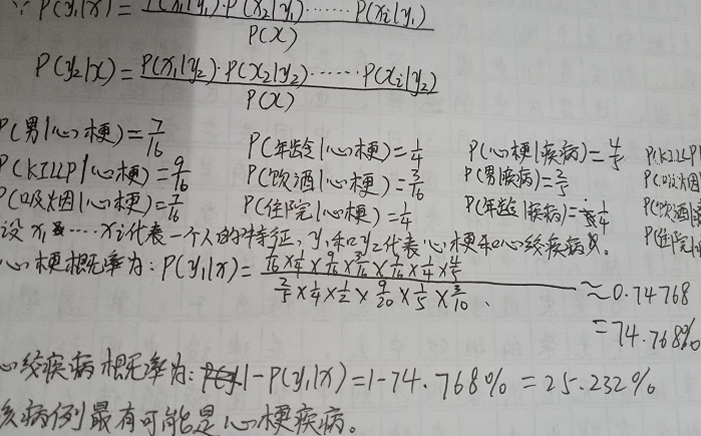 ∵ P(y₁|x) = P(x₁|y₁)·P(x₂|y₁)······P(xᵢ|y₁) / P(x)
P(y₂|x) = P(x₁|y₂)·P(x₂|y₂)······P(xᵢ|y₂) / P(x)
P(男|心梗)=7/16 P(年龄|心梗)=1/4 P(心梗|疾病)=4/5 P(KILLP|
P(KILLP|心梗)=9/16 P(饮酒|心梗)=3/16 P(男|疾病)=2/5 P(吸烟|
P(吸烟|心梗)=7/16 P(住院|心梗)=1/4 P(年龄|疾病)=1/4 P(饮酒|
设x₁····xᵢ代表一个人的特征,y₁和y₂代表心梗和心绞疾病。 P(住院|
心梗概率为:P(y₁|x)= 7/16×1/4×9/16×3/16×7/16×1/4×4/5 / 2/5×1/4×1/2×9/20×1/5×3/10 ≈0.74768
=74.768%
心绞疾病概率为:1-P(y₁|x)=1-74.768%=25.232%
该病例最有可能是心梗疾病。